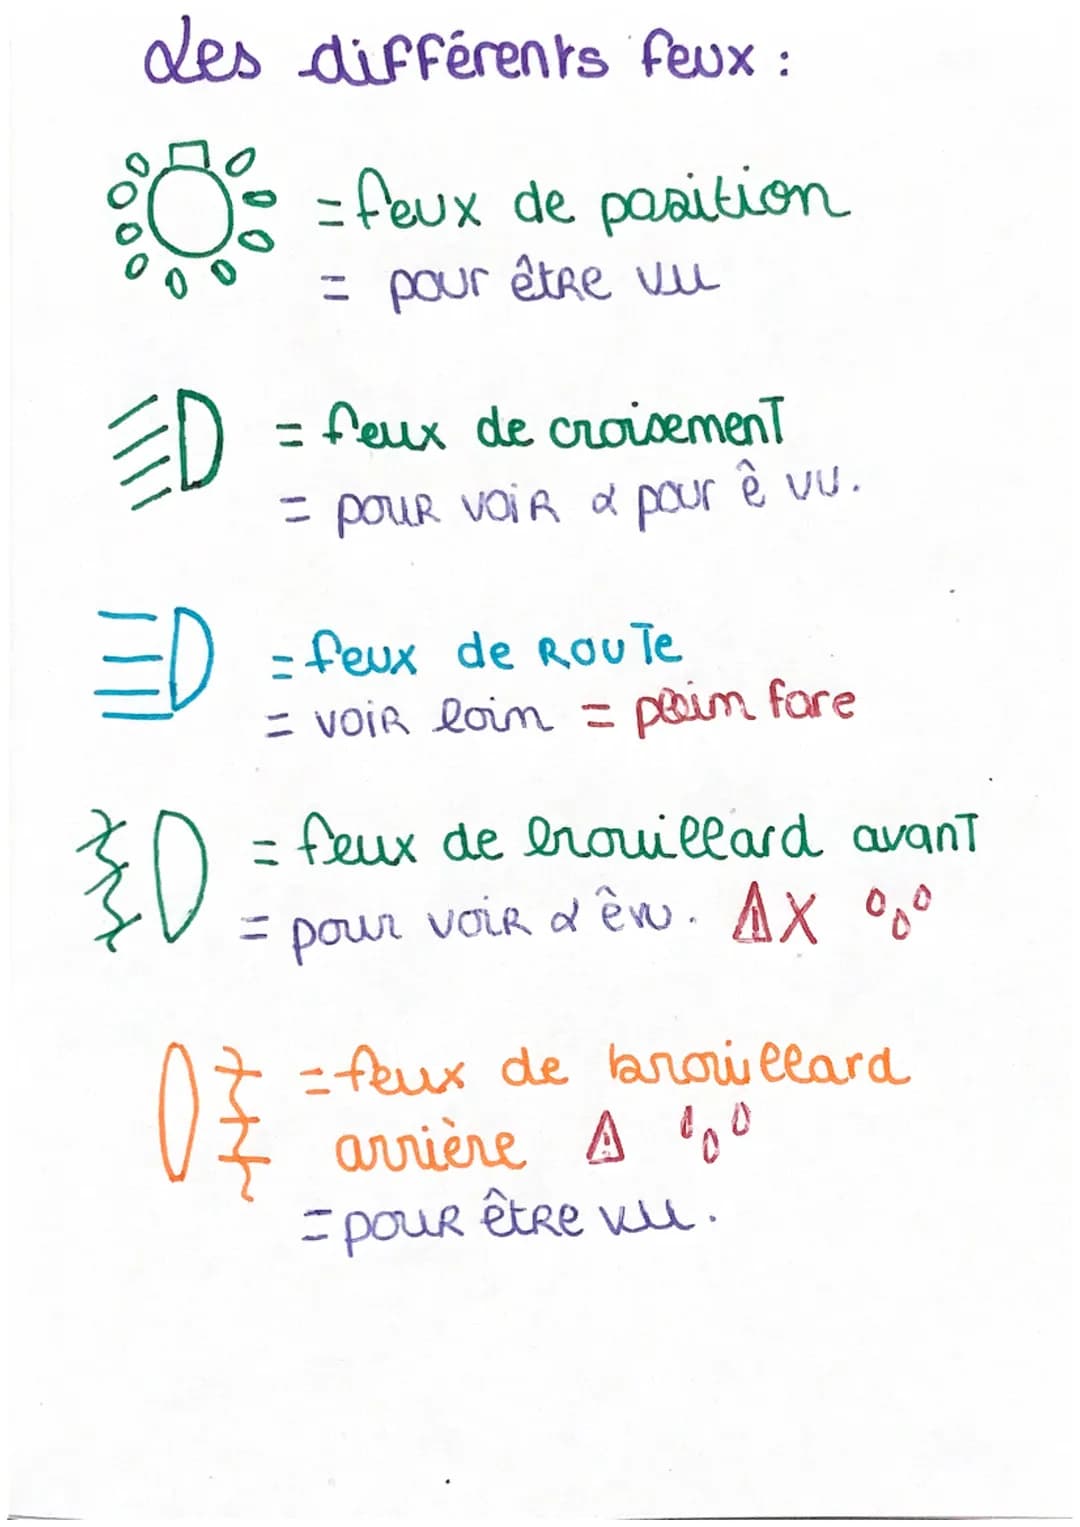 Les différents feux :
= feux de position
= pour être vu
= feux de croisement
= pour voir & pour ê vu.
= feux de route
= voir loin = plein fare
= feux de brouillard avant
= pour voir & êvu. ⚠X
= feux de brouillard
arrière ⚠
= pour être vu.